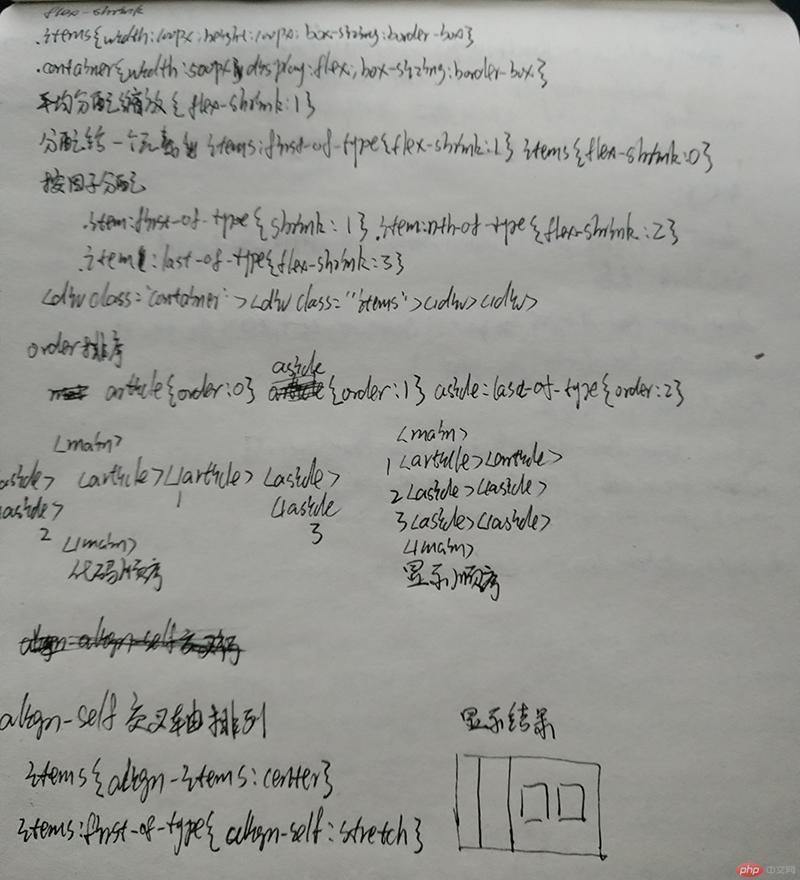 flex-shrink
.items{width:100px;height:100px;box-sizing:border-box}
.container{width:500px;display:flex;box-sizing:border-box.}
平均分配缩放{flex-shrink:1}
分配给一个元素 items:first-of-type{flex-shrink:1} items{flex-shrink:0}
按因子分配
.item:first-of-type{shrink:1} .item:nth-of-type{flex-shrink:2}
.item:last-of-type{flex-shrink:3}
<div class='container'><div class="items"></div></div>
order排序
aside
article{order:0} {order:1} aside=last-of-type{order:2}
<main>
aside> <article></article> <aside>
aside> 1 </aside
2 3
</main>
代码顺序
<main>
1 <article><article>
2 <aside></aside>
3 <aside></aside>
</main>
显示顺序
align-self 交叉轴排列
items{align-items:center}
items:first-of-type{align-self:stretch}
显示结果
php 中文网